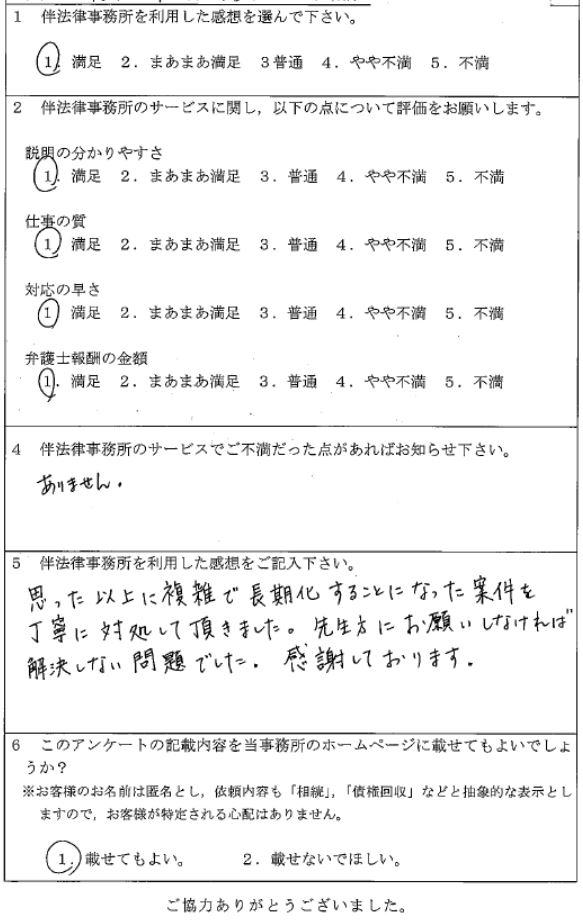 1 伴法律事務所を利用した感想を選んで下さい。
1. 満足 2. まあまあ満足 3 普通 4. やや不満 5. 不満
2 伴法律事務所のサービスに関し,以下の点について評価をお願いします。
説明の分かりやすさ
1. 満足 2. まあまあ満足 3. 普通 4. やや不満 5. 不満
仕事の質
1 満足 2. まあまあ満足 3. 普通 4. やや不満 5. 不満
対応の早さ
1 満足 2. まあまあ満足 3. 普通 4. やや不満 5. 不満
弁護士報酬の金額
1. 満足 2. まあまあ満足 3. 普通 4. やや不満 5. 不満
4 伴法律事務所のサービスでご不満だった点があればお知らせ下さい。
ありません.
5 伴法律事務所を利用した感想をご記入下さい。
思った以上に複雑で長期化することになった案件を
丁寧に対処して頂きました。先生方にお願いしなければ
解決しない問題でした. 感謝しております.
6 このアンケートの記載内容を当事務所のホームページに載せてもよいでしょ
うか?
※お客様のお名前は匿名とし,依頼内容も「相続」,「債権回収」などと抽象的な表示とし
ますので,お客様が特定される心配はありません。
1. 載せてもよい。 2. 載せないでほしい。
ご協力ありがとうございました。